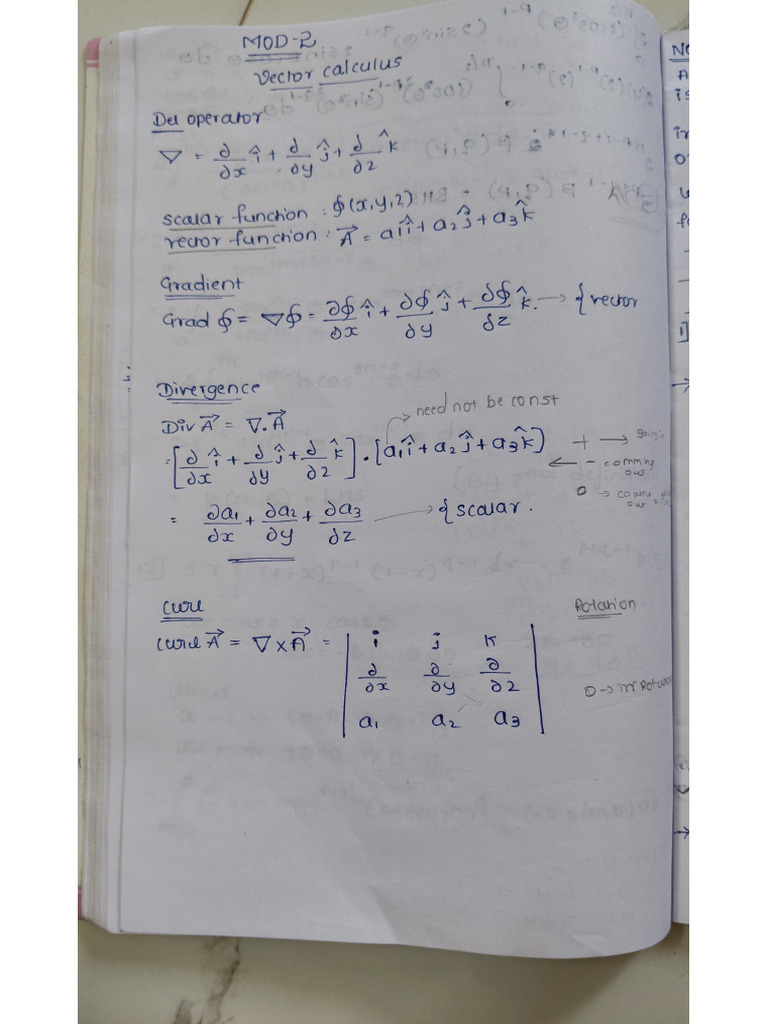 MOD-2
Vector calculus
Del operator
∇ = ∂/∂x î + ∂/∂y ĵ + ∂/∂z k̂
scalar function : ϕ(x,y,z)
vector function : A⃗ = a₁î + a₂ĵ + a₃k̂
Gradient
Grad ϕ = ∇ϕ = ∂ϕ/∂x î + ∂ϕ/∂y ĵ + ∂ϕ/∂z k̂. → { vector
Divergence
Div A⃗ = ∇.A⃗
→ need not be const
= [∂/∂x î + ∂/∂y ĵ + ∂/∂z k̂] . [a₁î + a₂ĵ + a₃k̂)
+ →
← - comming out
0 →
= ∂a₁/∂x + ∂a₂/∂y + ∂a₃/∂z → { scalar.
Curl
Rotation
Curl A⃗ = ∇ × A⃗ = | i j k |
| ∂/∂x ∂/∂y ∂/∂z |
| a₁ a₂ a₃ |
0 →